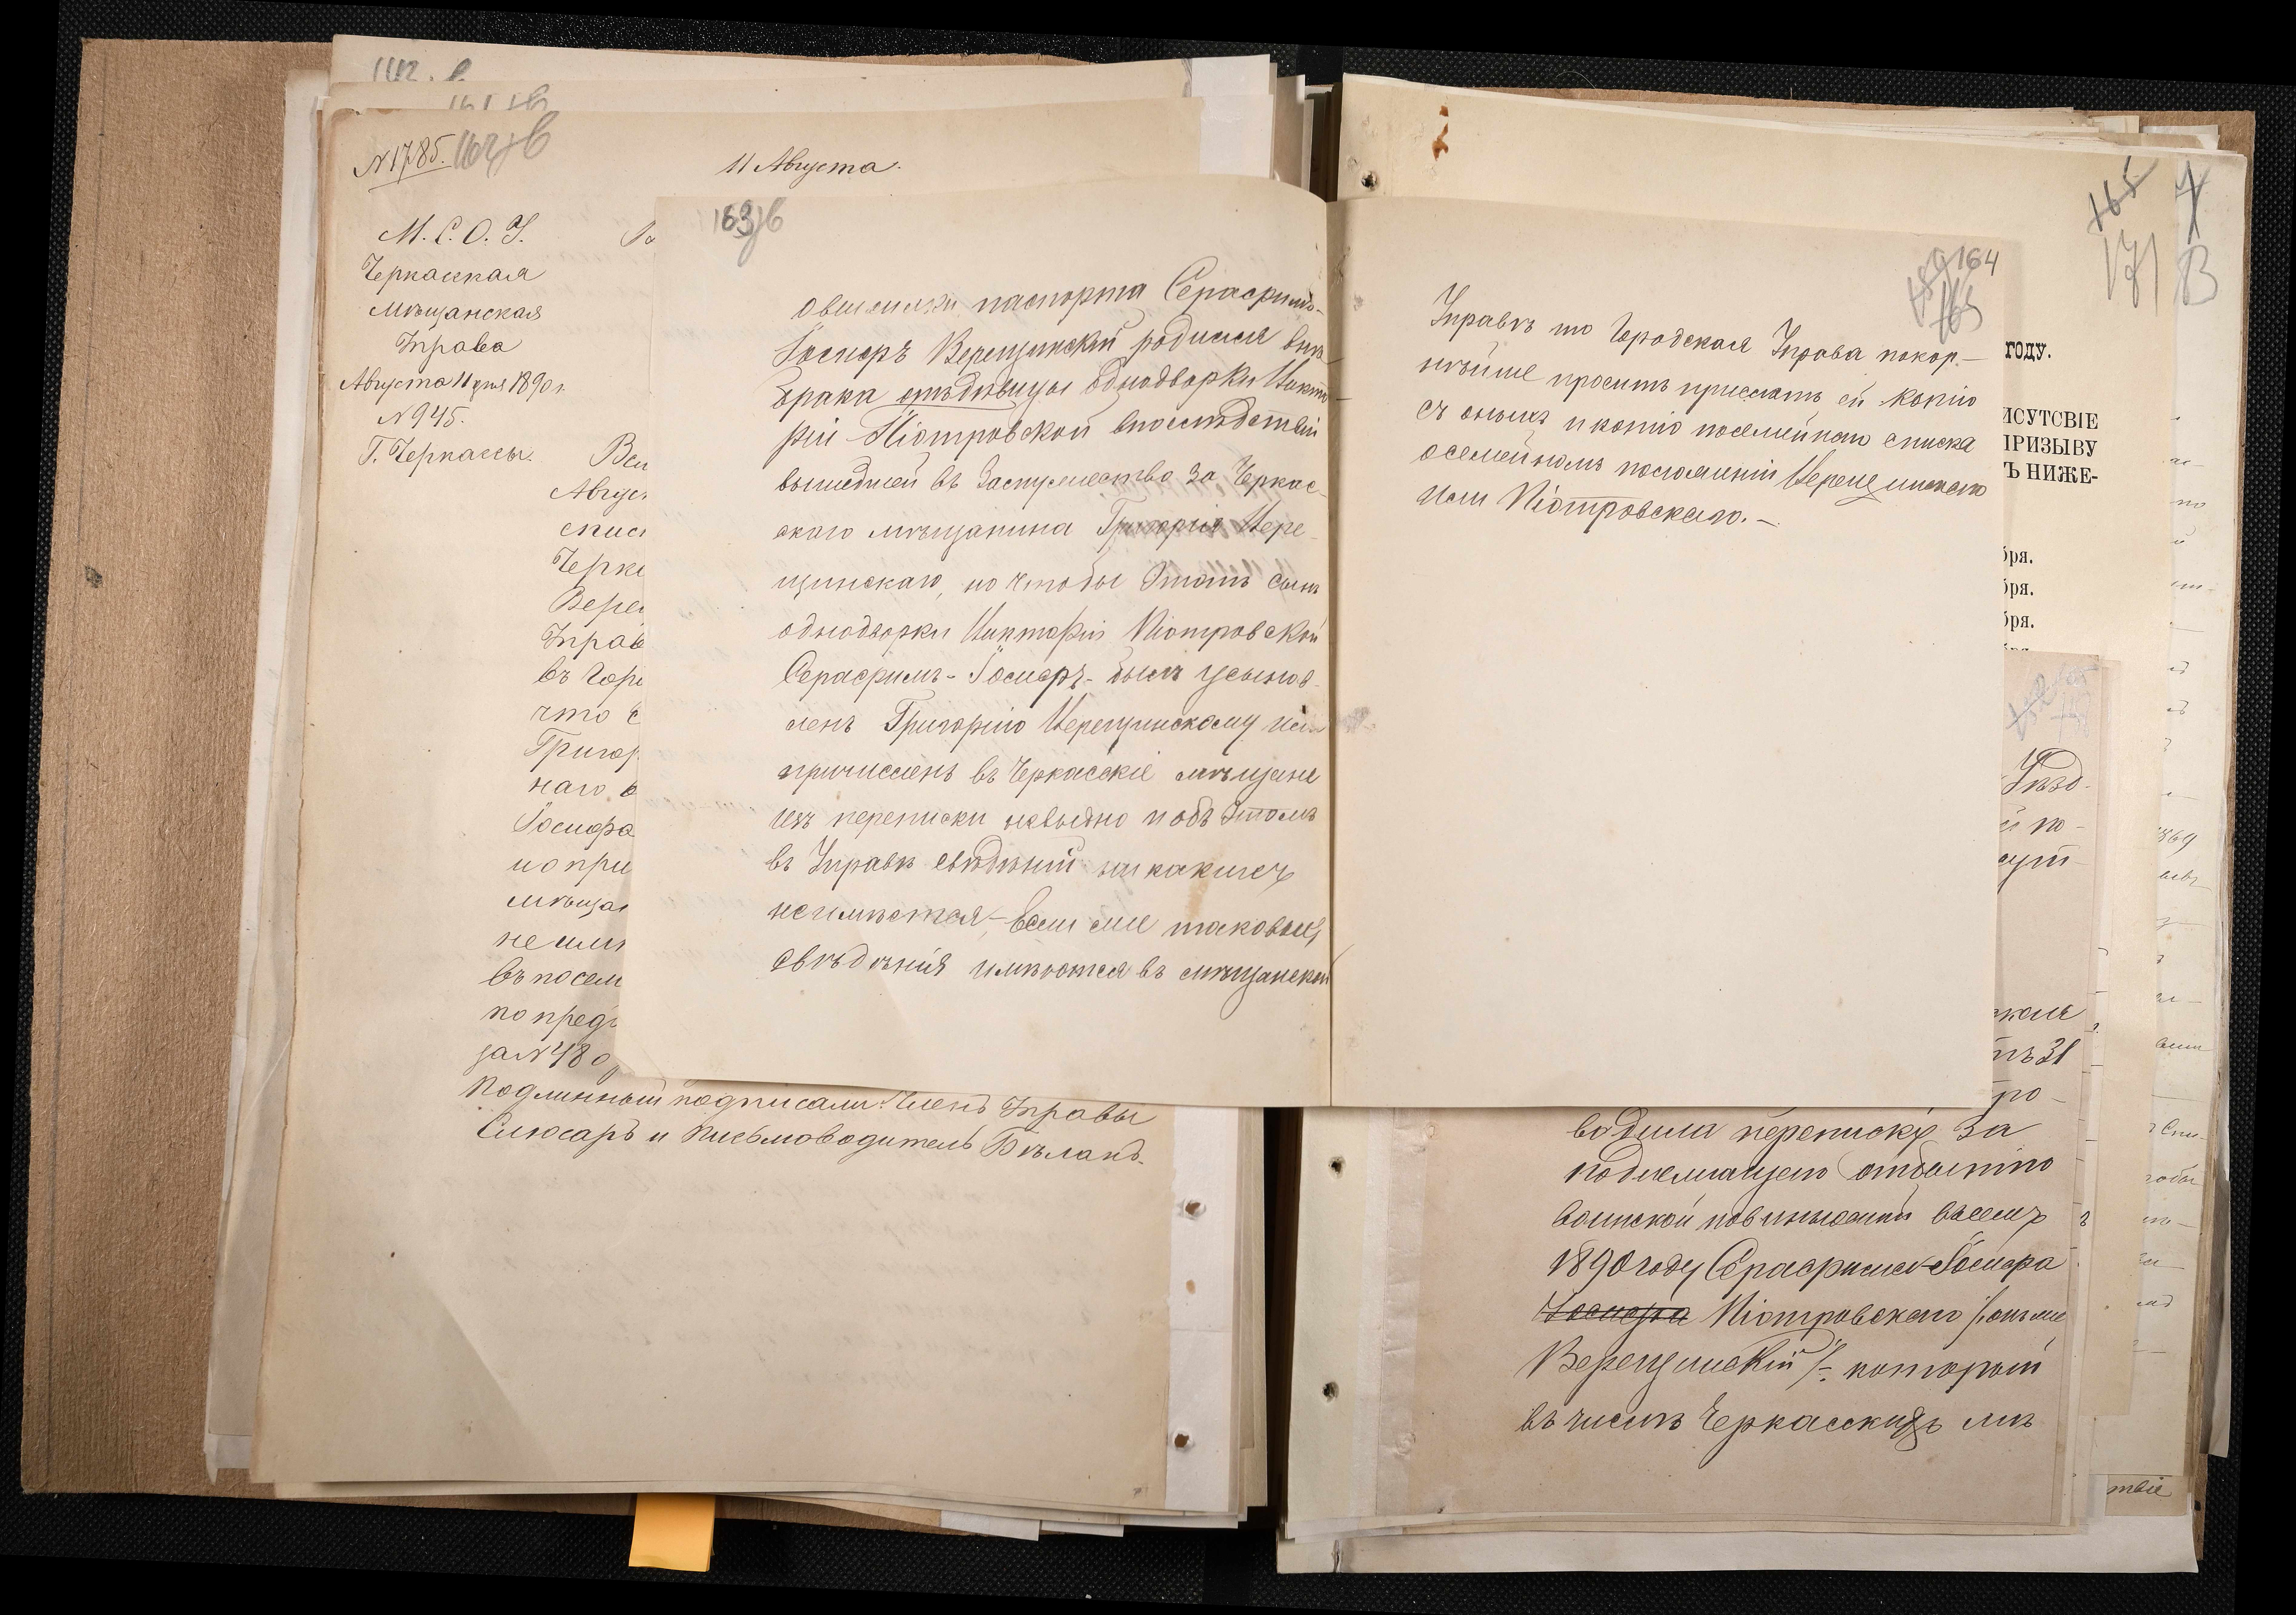 162 в
161 в
N 1785.
162 в
11 Августа.
М. С. О. У.
Черкасская
мѣщанская
Управа
Августа 11 дня 1890 г.
N 945.
Г. Черкассы.
Авгус
спис
Черк
Вере
Управ
въ Горо
что с
Григор
наго
Іосифа
но при
мѣща
не им
въ посем
по пред
за N 480
Подлинный подписали: Членъ Управы
Слюсарь и Письмоводитель Бѣланъ.
163 в
о высылки паспорта Серафимъ-
Іосифъ Верещинскій родился внѣ
брака отъ дѣвицы однодворки Викто-
ріи Піотровской впослѣдствіи
вышедшей въ Замужество за Черкас-
скаго мѣщанина Григорія Вере-
щинскаго, но чтобы этотъ сынъ
однодворки Викторіи Піотровской
Серафимъ-Іосифъ- былъ усынов-
ленъ Григорію Верещинскому или
причисленъ въ Черкасскіе мѣщане
изъ переписки невидно и объ этомъ
въ Управѣ свѣдѣній ни какихъ
не имѣется, Если же таковыя
свѣдѣнія имѣются въ мѣщанской
164
165
Управѣ то Городская Управа покор-
нѣйше проситъ прислать ей копію
съ оныхъ и копію посемейнаго списка
о семейномъ положеніи Верещинскаго
или Піотровскаго.-
165
171
В
ГОДУ.
ИСУТСВІЕ
ПРИЗЫВУ
Ъ НИЖЕ-
бря.
бря.
бря.
Уѣзд-
й по-
сут-
ская
тъ 31
про-
водила переписку за
подлежащаго отбытію
воинской повинности въ семъ
1890 году Серафима-Іосифа
Іосифа Піотровскаго /онъ же
Верещинскій/- который
въ числѣ Черкасскихъ мѣ
1869
твіе